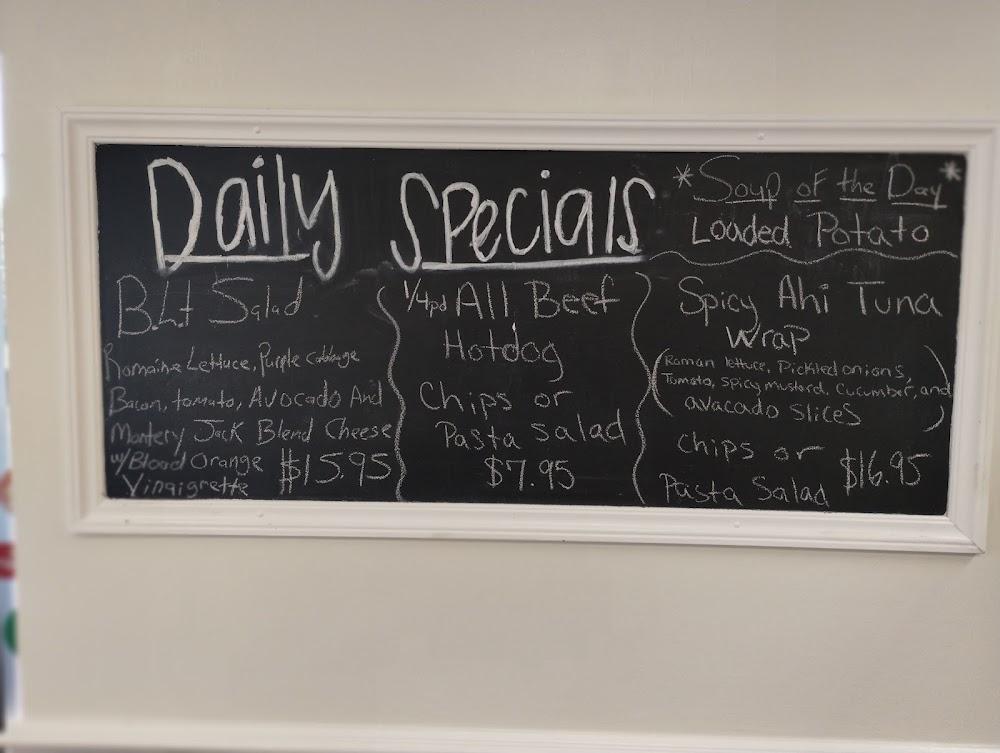 Daily Specials
* Soup of the Day *
Loaded Potato
B.L.t Salad
Romaine Lettuce, Purple cabbage
Bacon, tomato, Avocado And
Montery Jack Blend Cheese
w/Blood Orange $15.95
Vinaigrette
1/4pd All Beef
Hotdog
Chips or
Pasta salad
$7.95
Spicy Ahi Tuna
Wrap
(Roman lettuce, Pickled onions,
Tomato, spicy mustard, cucumber, and
avacado slices)
Chips or
Pasta Salad $16.95